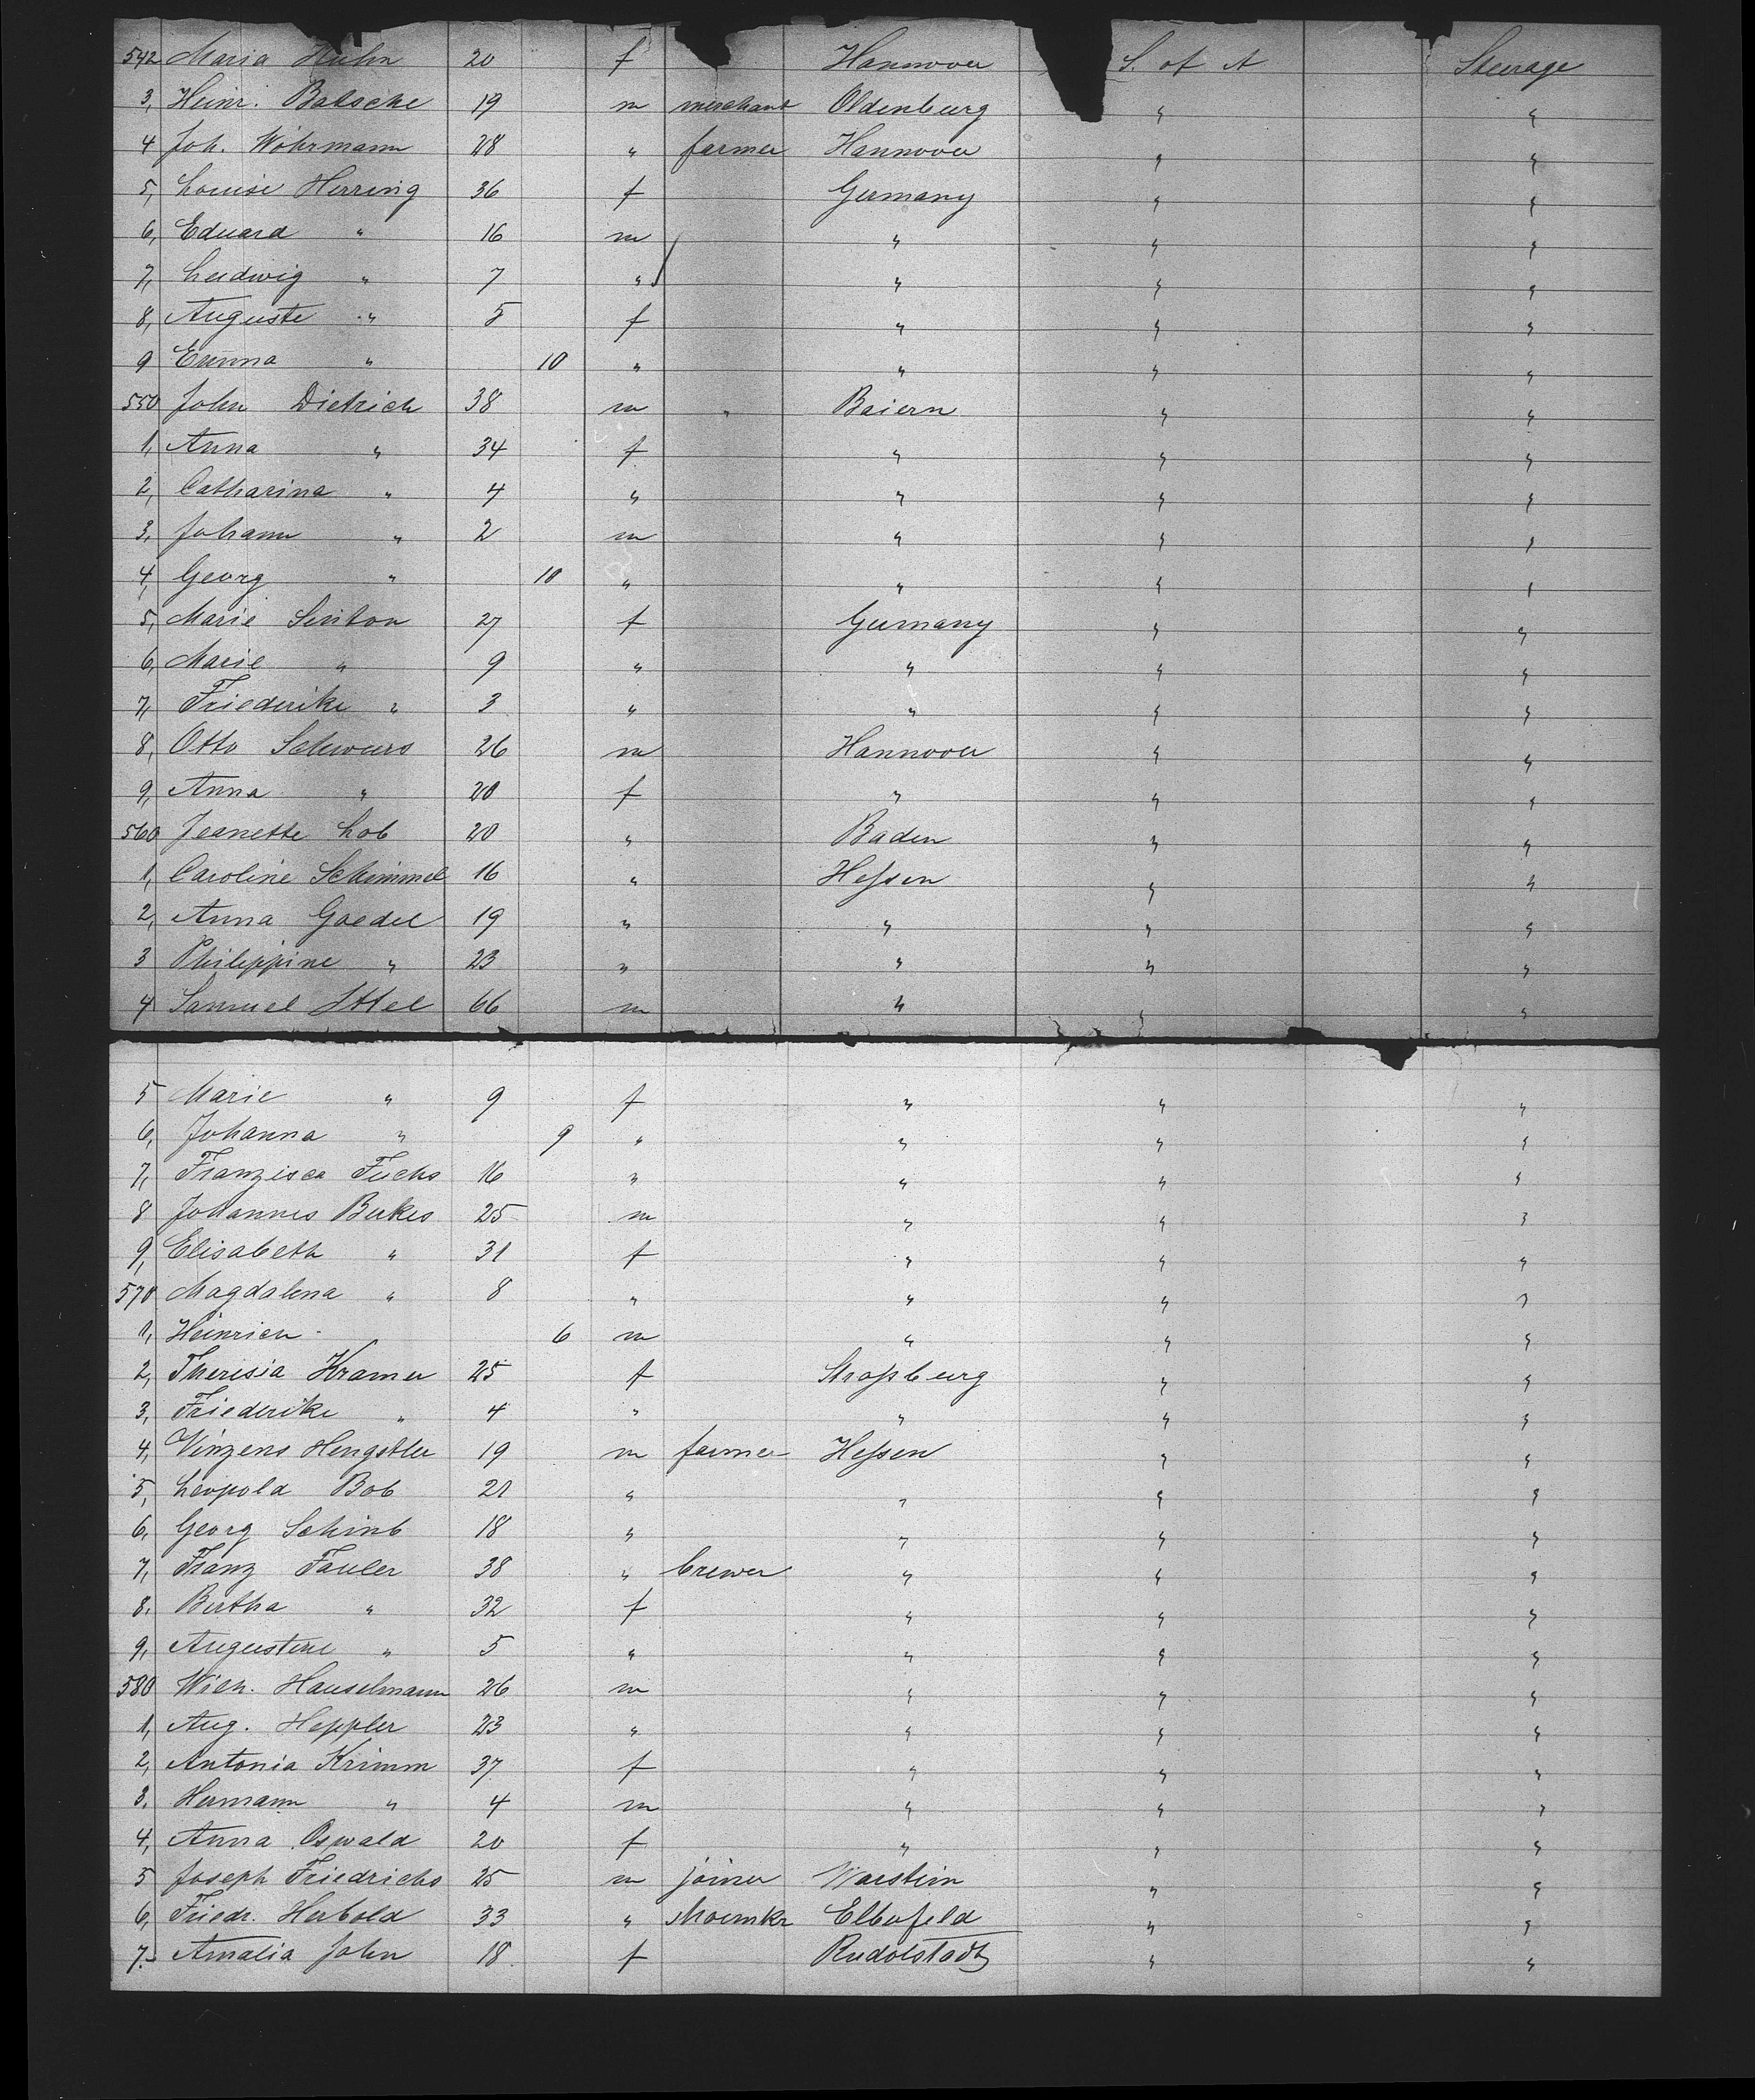 542 Maria Huhn 20 f Hannover S. of A Steerage
3, Heinr. Batsche 19 m merchant Oldenburg " "
4 Joh. Wöhrmann 28 " farmer Hannover " "
5, Louise Herring 36 f Germany " "
6, Eduard " 16 m " " "
7, Ludwig " 7 " " " "
8, Auguste " 5 f " " "
9 Emma " 10 " " " "
550 John Dietrich 38 m " Baiern " "
1, Anna " 34 f " " "
2, Catharina " 4 " " " "
3, Johann " 2 m " " "
4, Georg " 10 " " " "
5, Marie Sinton 27 f Germany " "
6, Marie " 9 " " " "
7, Friederike " 3 " " " "
8, Otto Schweers 26 m Hannover " "
9, Anna " 20 f " " "
560 Jeanette Lob 20 " Baden " "
1, Caroline Schimmel 16 " Hessen " "
2, Anna Goedel 19 " " " "
3 Philippine " 23 " " " "
4 Samuel Ittel 66 m " " "
5 Marie " 9 f " " "
6, Johanna " 9 " " " "
7, Franzisca Fuchs 16 " " " "
8 Johannes Berkes 25 m " " "
9, Elisabeth " 31 f " " "
570 Magdalena " 8 " " " "
1, Heinrich " 6 m " " "
2, Theresia Kramer 25 f Strassburg " "
3, Friederike " 4 " " " "
4, Vinzens Hengstler 19 m farmer Hessen " "
5, Leopold Bob 21 " " " "
6, Georg Schinb 18 " " " "
7, Franz Fauler 38 " brewer " " "
8. Bertha " 32 f " " "
9, Augustine " 5 " " " "
580 Wilh. Hauselmann 26 m " " "
1, Aug. Heppler 23 " " " "
2, Antonia Krimm 37 f " " "
3. Hermann " 4 m " " "
4, Anna Oswald 20 f " " "
5 Joseph Friedrichs 25 m joiner Warstein " "
6, Friedr. Herbold 33 " shoemkr Elberfeld " "
7. Amalia John 18 f Rudolstadt " "